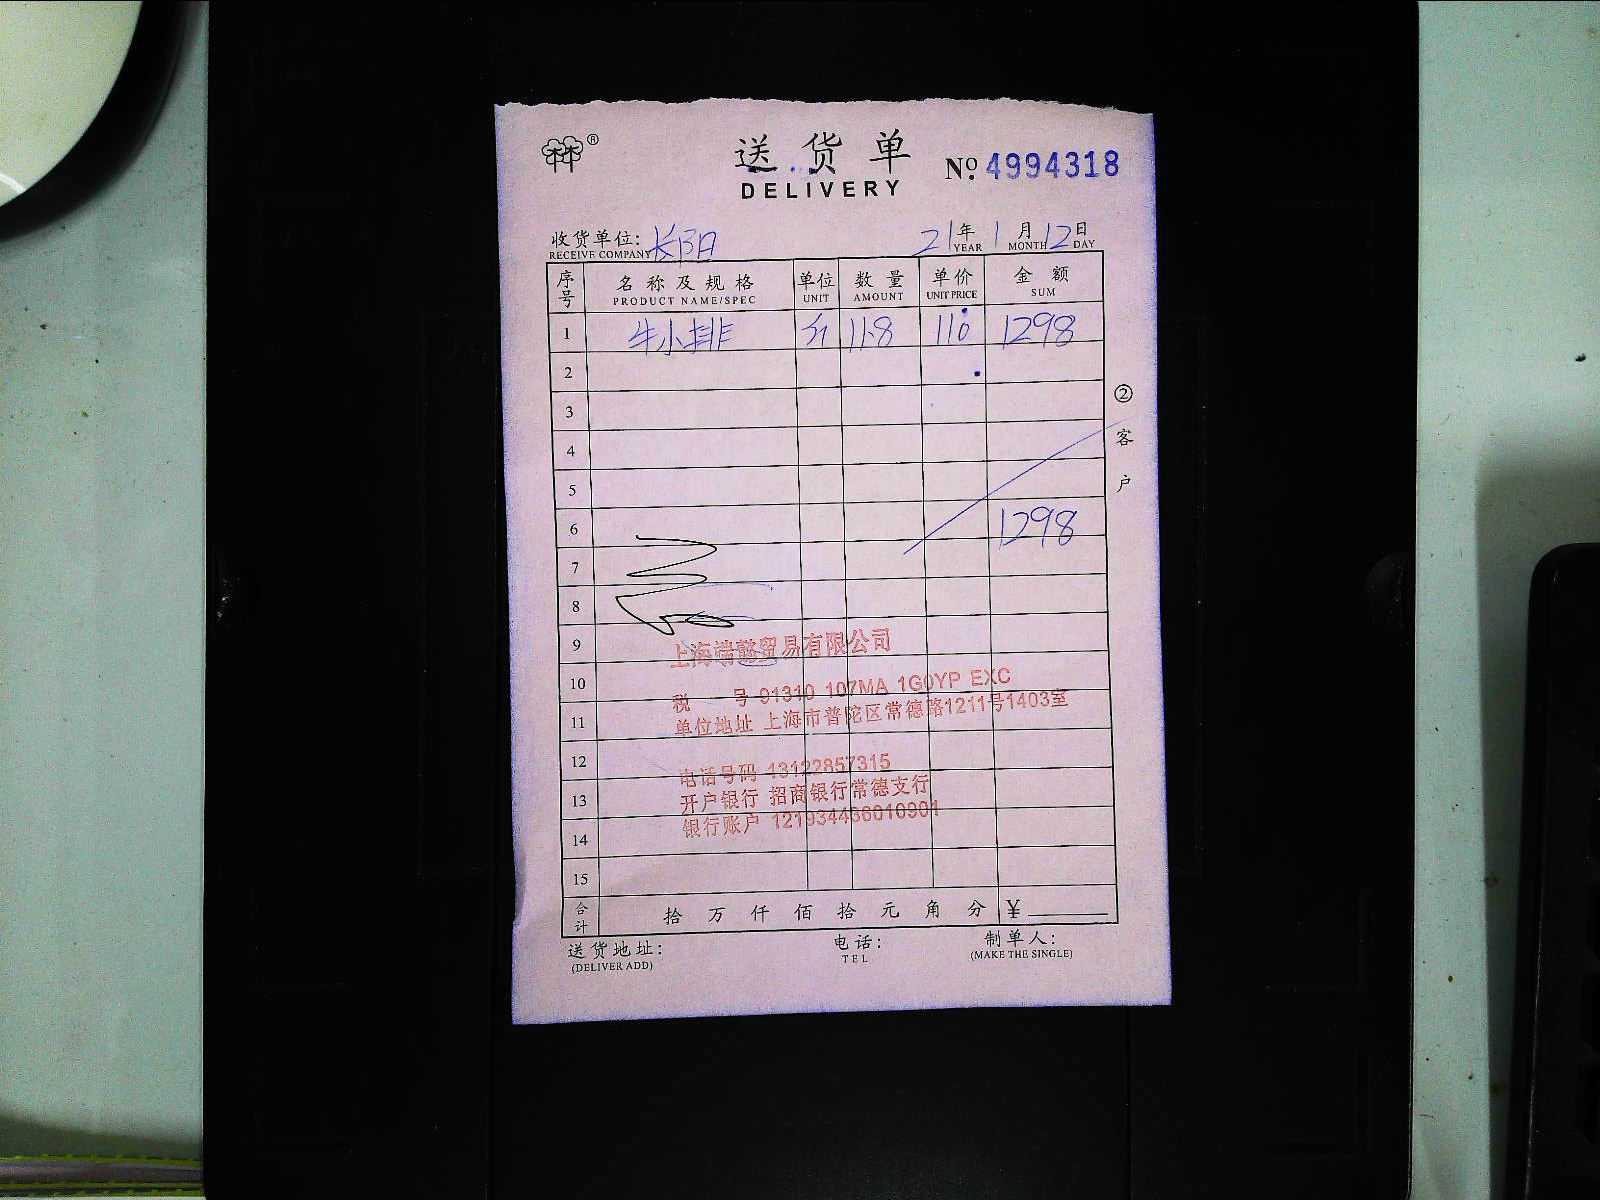 林®
送货单
DELIVERY
No. 4994318
收货单位: 长阳 21年 1月 12日
RECEIVE COMPANY YEAR MONTH DAY
序号 名称及规格 单位 数量 单价 金额
PRODUCT NAME/SPEC UNIT AMOUNT UNIT PRICE SUM
1 牛小排 斤 11.8 110 1298
2
3
4
5
6 1298
7
8
9
10
11
12
13
14
15
②客户
上海端懿贸易有限公司
税 号 91310 107MA 1G0YP EXC
单位地址 上海市普陀区常德路1211号1403室
电话号码 13122857315
开户银行 招商银行常德支行
银行账户 121934436010901
合计 拾 万 仟 佰 拾 元 角 分 ¥
送货地址: 电话: 制单人:
(DELIVER ADD) TEL (MAKE THE SINGLE)